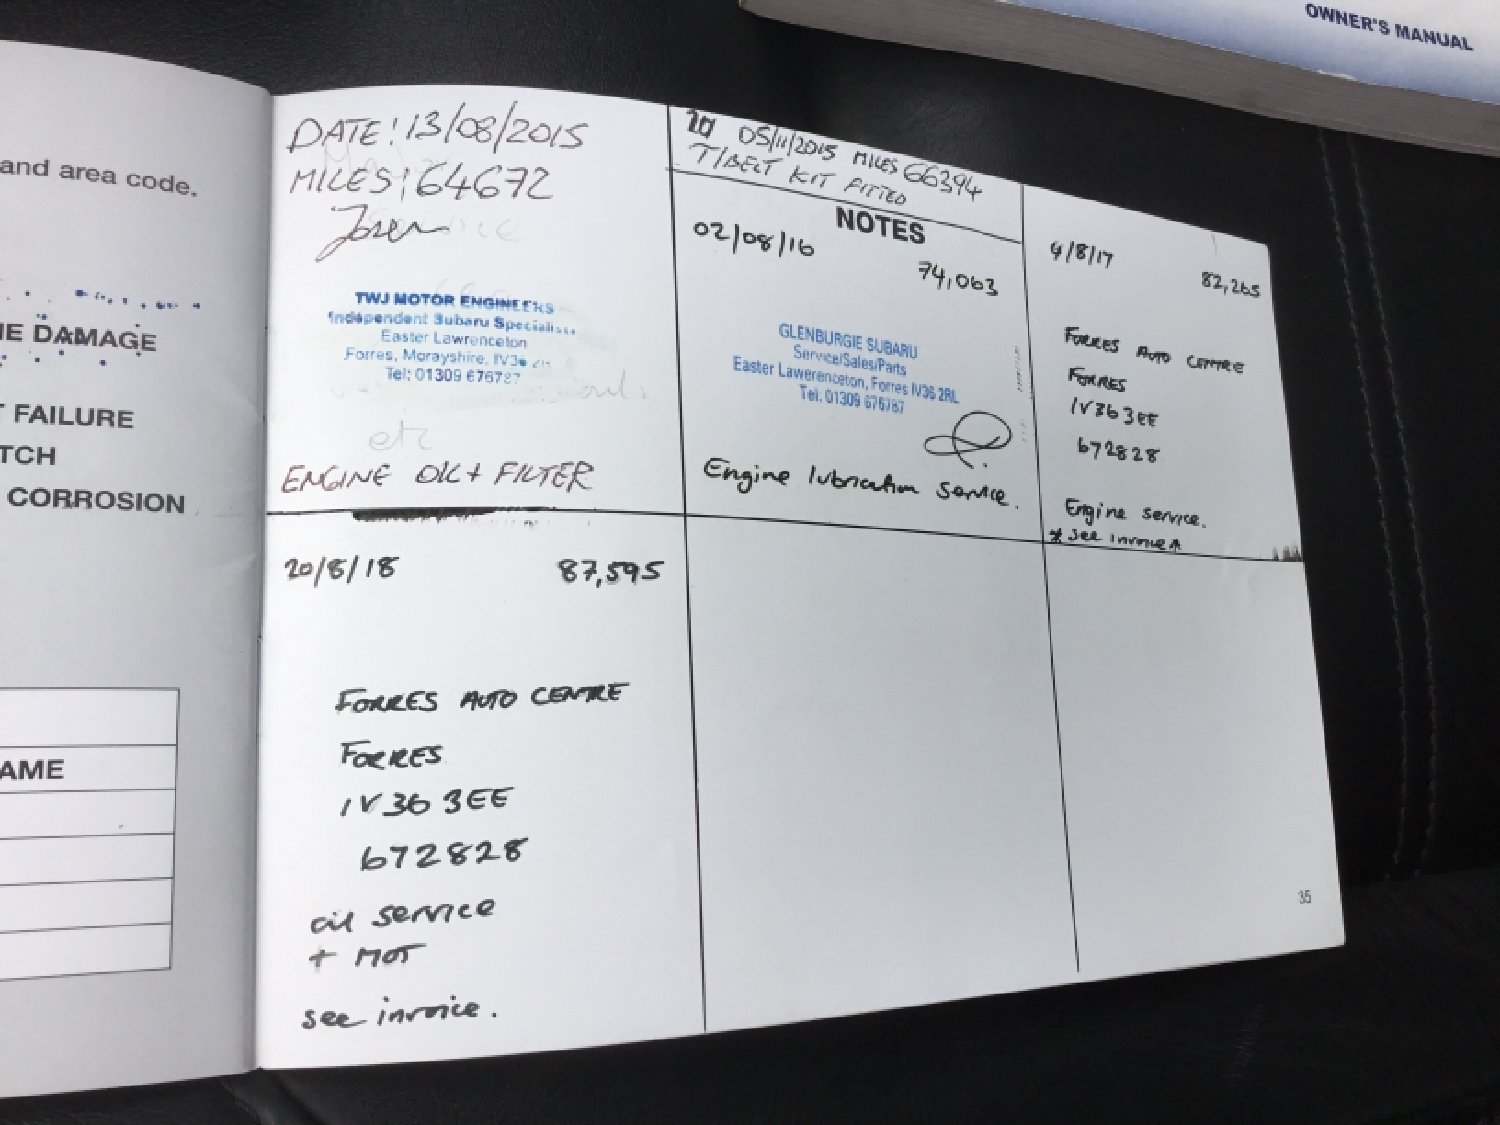 OWNER'S MANUAL
and area code.
E DAMAGE
FAILURE
TCH
CORROSION
AME
DATE: 13/08/2015
MILES: 64672
TWJ MOTOR ENGINEERS
Independent Subaru Specialists
Easter Lawrenceton
Forres, Morayshire, IV36
Tel: 01309 676787
etc
ENGINE OIL + FILTER
05/11/2015 MILES 66394
T/BELT KIT FITTED
NOTES
02/08/16
74,063
GLENBURGIE SUBARU
Service/Sales/Parts
Easter Lawerenceton, Forres IV36 2RL
Tel. 01309 676787
Engine lubrication service.
4/8/17 82,265
FORRES AUTO CENTRE
FORRES
IV36 3EE
672828
Engine service.
* see invoice *
20/8/18 87,595
FORRES AUTO CENTRE
FORRES
IV36 3EE
672828
oil service
+ MOT
see invoice.
35